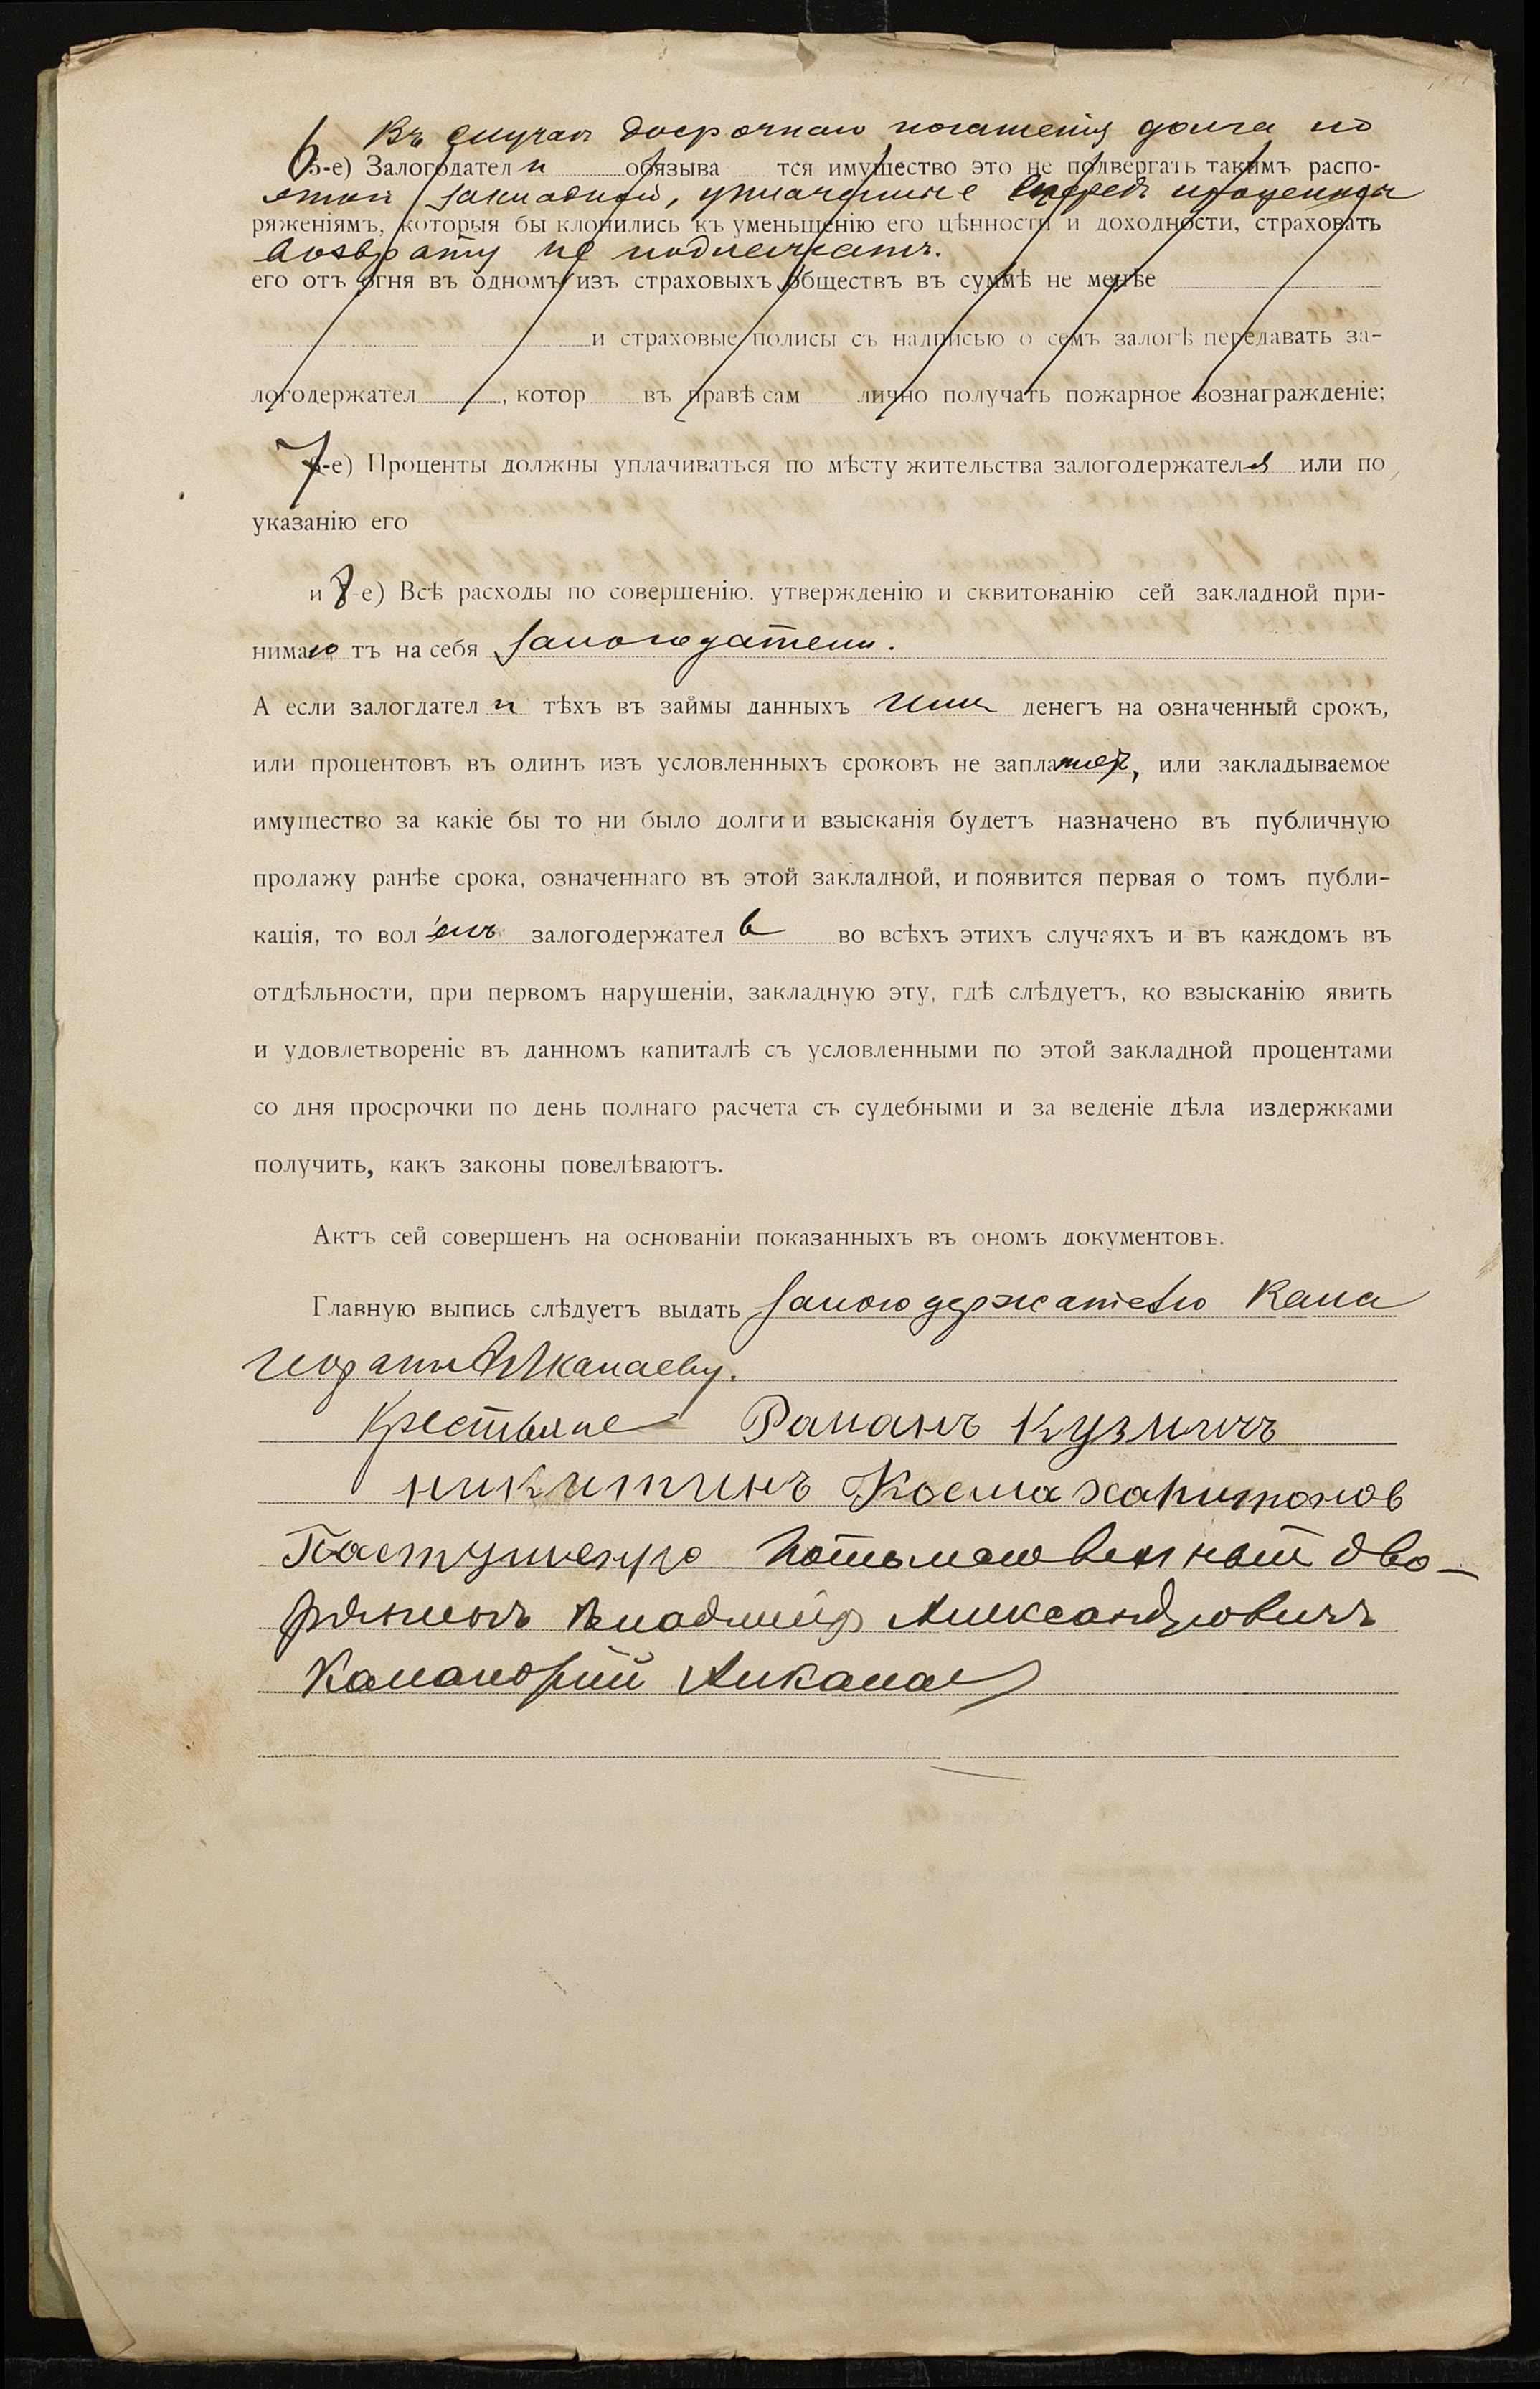 6 Въ случаѣ досрочнаго погашенія долга по
5-е) Залогодател и обязыва тся имущество это не подвергать такимъ распо-
этой закладной, уплаченные впередъ проценты
ряженіямъ, которыя бы клонились къ уменьшенію его цѣнности и доходности, страховать
возврату не подлежатъ.
его отъ огня въ одномъ изъ страховыхъ обществъ въ суммѣ не менѣе
и страховые полисы съ надписью о семъ залогѣ передавать за-
логодержател , котор въ правѣ сам лично получать пожарное вознагражденіе;
7-е) Проценты должны уплачиваться по мѣсту жительства залогодержателя или по
указанію его
и 8-е) Всѣ расходы по совершенію. утвержденію и сквитованію сей закладной при-
нимаютъ на себя залогодатели.
А если залогдател и тѣхъ въ займы данныхъ имъ денегъ на означенный срокъ,
или процентовъ въ одинъ изъ условленныхъ сроковъ не заплатятъ, или закладываемое
имущество за какіе бы то ни было долги и взысканія будетъ назначено въ публичную
продажу ранѣе срока, означеннаго въ этой закладной, и появится первая о томъ публи-
кація, то вол енъ залогодержател ь во всѣхъ этихъ случаяхъ и въ каждомъ въ
отдѣльности, при первомъ нарушеніи, закладную эту, гдѣ слѣдуетъ, ко взысканію явить
и удовлетвореніе въ данномъ капиталѣ съ условленными по этой закладной процентами
со дня просрочки по день полнаго расчета съ судебными и за веденіе дѣла издержками
получить, какъ законы повелѣваютъ.
Актъ сей совершенъ на основаніи показанныхъ въ ономъ документовъ.
Главную выпись слѣдуетъ выдать залогодержателю Кала
Крестьяне Раманъ Кузмичъ
никитинъ Косма харитонов
Пастушенко Потомственный дво-
рянинъ Владиміръ Александровичъ